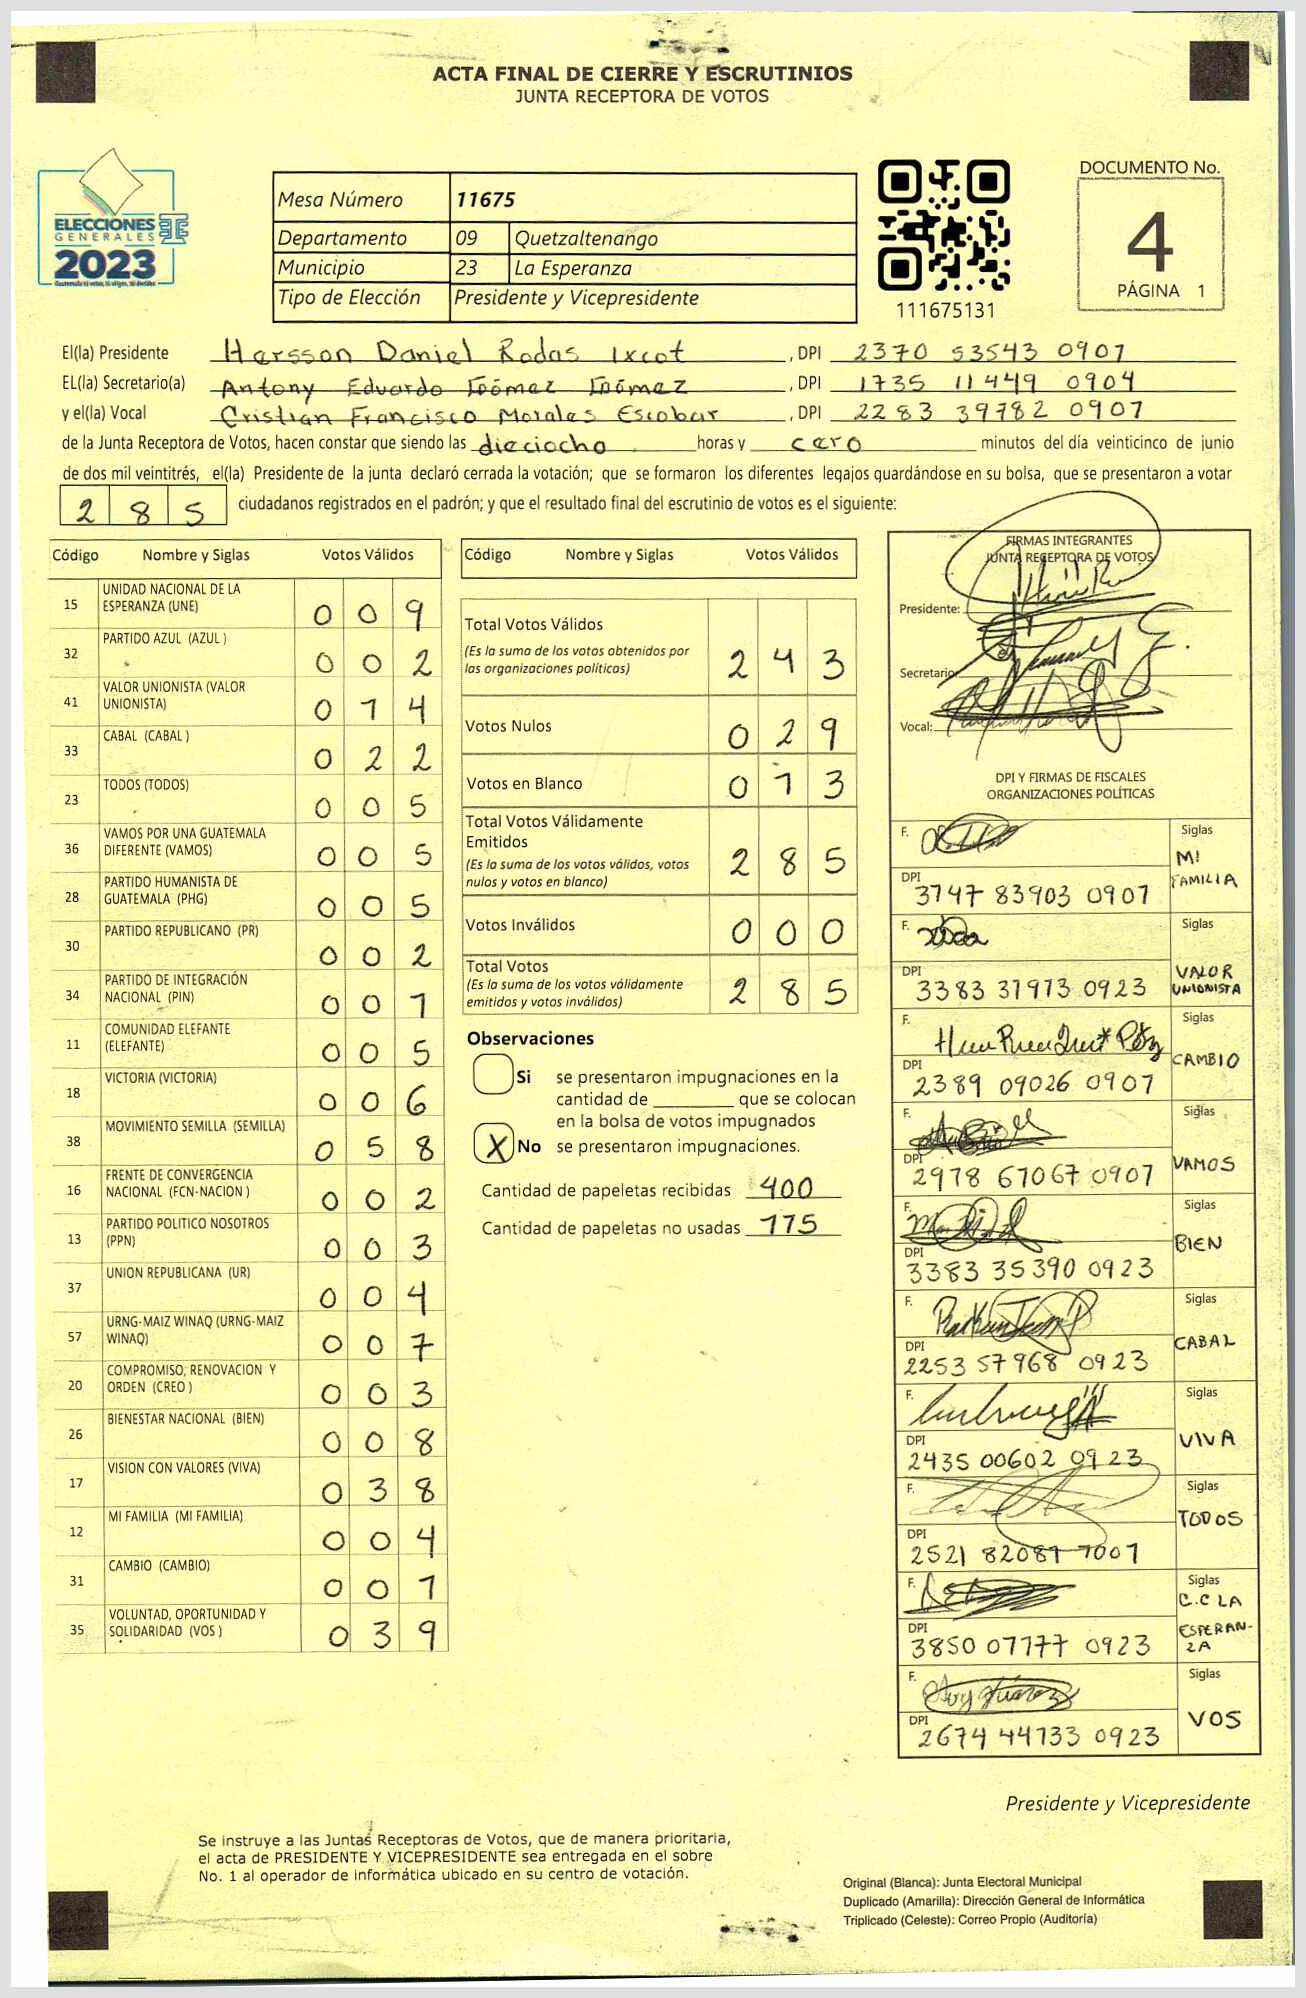 ACTA FINAL DE CIERRE Y ESCRUTINIOS
JUNTA RECEPTORA DE VOTOS
ELECCIONES
GENERALES
2023
Mesa Número 11675
Departamento 09 Quetzaltenango
Municipio 23 La Esperanza
Tipo de Elección Presidente y Vicepresidente
111675131
DOCUMENTO No.
4
PÁGINA 1
El(la) Presidente Hersson Daniel Rodas Ixcot , DPI 2370 53543 0907
EL(la) Secretario(a) Antony Eduardo Gómez Gómez , DPI 1735 11449 0904
y el(la) Vocal Cristian Francisco Morales Escobar , DPI 2283 39782 0907
de la Junta Receptora de Votos, hacen constar que siendo las dieciocho horas y cero minutos del día veinticinco de junio
de dos mil veintitrés, el(la) Presidente de la junta declaró cerrada la votación; que se formaron los diferentes legajos guardándose en su bolsa, que se presentaron a votar
285 ciudadanos registrados en el padrón; y que el resultado final del escrutinio de votos es el siguiente:
Código Nombre y Siglas Votos Válidos
15 UNIDAD NACIONAL DE LA ESPERANZA (UNE) 009
32 PARTIDO AZUL (AZUL ) 002
41 VALOR UNIONISTA (VALOR UNIONISTA) 014
33 CABAL (CABAL ) 022
23 TODOS (TODOS) 005
36 VAMOS POR UNA GUATEMALA DIFERENTE (VAMOS) 005
28 PARTIDO HUMANISTA DE GUATEMALA (PHG) 005
30 PARTIDO REPUBLICANO (PR) 002
34 PARTIDO DE INTEGRACIÓN NACIONAL (PIN) 001
11 COMUNIDAD ELEFANTE (ELEFANTE) 005
18 VICTORIA (VICTORIA) 006
38 MOVIMIENTO SEMILLA (SEMILLA) 058
16 FRENTE DE CONVERGENCIA NACIONAL (FCN-NACION ) 002
13 PARTIDO POLITICO NOSOTROS (PPN) 003
37 UNION REPUBLICANA (UR) 004
57 URNG-MAIZ WINAQ (URNG-MAIZ WINAQ) 007
20 COMPROMISO, RENOVACION Y ORDEN (CREO ) 003
26 BIENESTAR NACIONAL (BIEN) 008
17 VISION CON VALORES (VIVA) 038
12 MI FAMILIA (MI FAMILIA) 004
31 CAMBIO (CAMBIO) 001
35 VOLUNTAD, OPORTUNIDAD Y SOLIDARIDAD (VOS ) 039
Código Nombre y Siglas Votos Válidos
Total Votos Válidos 243
(Es la suma de los votos obtenidos por
las organizaciones políticas)
Votos Nulos 029
Votos en Blanco 013
Total Votos Válidamente
Emitidos 285
(Es la suma de los votos válidos, votos
nulos y votos en blanco)
Votos Inválidos 000
Total Votos 285
(Es la suma de los votos válidamente
emitidos y votos inválidos)
Observaciones
Si se presentaron impugnaciones en la
cantidad de ________ que se colocan
en la bolsa de votos impugnados
X No se presentaron impugnaciones.
Cantidad de papeletas recibidas 400
Cantidad de papeletas no usadas 115
FIRMAS INTEGRANTES
JUNTA RECEPTORA DE VOTOS
Presidente:
Secretario:
Vocal:
DPI Y FIRMAS DE FISCALES
ORGANIZACIONES POLÍTICAS
F. Siglas MI FAMILIA
DPI 3747 83903 0907
F. Siglas VALOR UNIONISTA
DPI 3383 31973 0923
F. Siglas CAMBIO
DPI 2389 09026 0907
F. Siglas VAMOS
DPI 2978 67067 0907
F. Siglas BIEN
DPI 3383 35390 0923
F. Siglas CABAL
DPI 2253 57968 0923
F. Siglas VIVA
DPI 2435 00602 0923
F. Siglas TODOS
DPI 2521 82081 1001
F. Siglas C.C LA ESPERAN-ZA
DPI 3850 07177 0923
F. Siglas VOS
DPI 2674 44133 0923
Presidente y Vicepresidente
Se instruye a las Juntas Receptoras de Votos, que de manera prioritaria,
el acta de PRESIDENTE Y VICEPRESIDENTE sea entregada en el sobre
No. 1 al operador de informática ubicado en su centro de votación.
Original (Blanca): Junta Electoral Municipal
Duplicado (Amarilla): Dirección General de Informática
Triplicado (Celeste): Correo Propio (Auditoría)